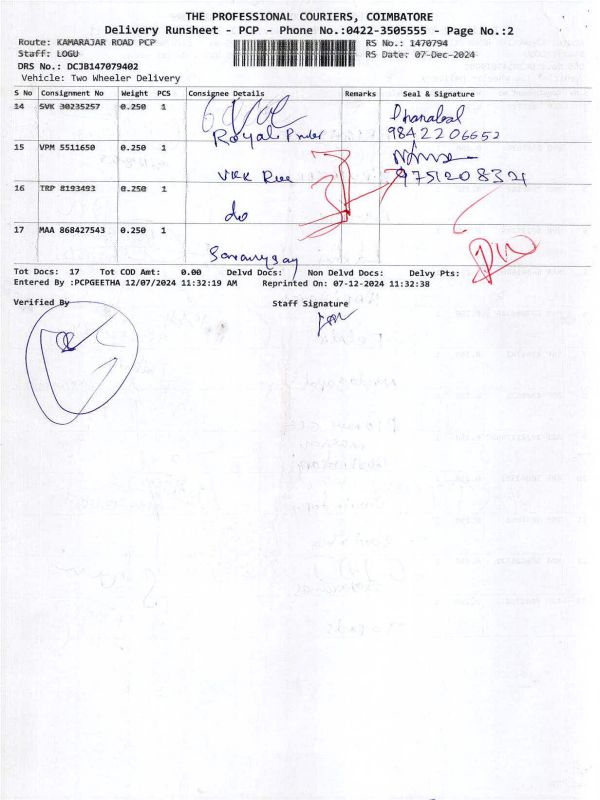 THE PROFESSIONAL COURIERS, COIMBATORE
Delivery Runsheet - PCP - Phone No.:0422-3505555 - Page No.:2
Route: KAMARAJAR ROAD PCP
RS No.: 1470794
Staff: LOGU
RS Date: 07-Dec-2024
DRS No.: DCJB147079402
Vehicle: Two Wheeler Delivery
S No Consignment No Weight PCS Consignee Details Remarks Seal & Signature
14 SVK 30235257 0.250 1
Royal
9842206652
15 VPM 5511650 0.250 1
VKK
9751208321
16 TRP 8193493 0.250 1
do
17 MAA 868427543 0.250 1
Tot Docs: 17 Tot COD Amt: 0.00 Delvd Docs: Non Delvd Docs: Delvy Pts:
Entered By :PCPGEETHA 12/07/2024 11:32:19 AM Reprinted On: 07-12-2024 11:32:38
Verified By
Staff Signature